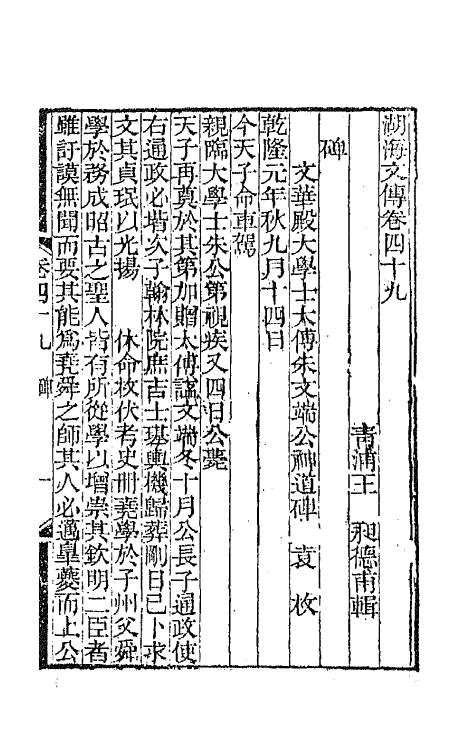 湖海文傳卷四十九
青浦王　昶德甫輯
碑
文華殿大學士太傅朱文端公神道碑　袁　枚
乾隆元年秋九月十四日
今天子命車駕
親臨大學士朱公第視疾又四日公薨
天子再奠於其第加贈太傅諡文端冬十月公長子通政使
右通政必堦次子翰林院庶吉士璂輿機歸葬剛日已卜求
文其貞珉以光揚　休命枚伏考史冊堯學於子州父舜
學於務成昭古之聖人皆有所從學以增崇其欽明二臣者
雖訏謨無聞而要其能爲堯舜之師其人必邁臯夔而上公
卷四十九　碑　一